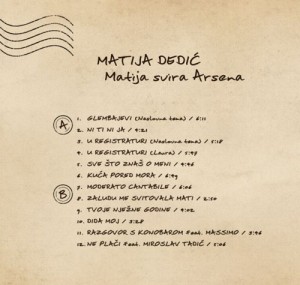 MATIJA DEDIĆ
Matija svira Arsena
A
1. GLEMBAJEVI (Naslovna tema) / 6:11
2. NI TI NI JA / 4:21
3. U REGISTRATURI (Naslovna tema) / 5:18
4. U REGISTRATURI (Laura) / 5:43
5. SVE ŠTO ZNAŠ O MENI / 4:46
6. KUĆA PORED MORA / 6:49
B
7. MODERATO CANTABILE / 6:06
8. ZALUDU ME SVITOVALA MATI / 2:50
9. TVOJE NJEŽNE GODINE / 4:02
10. DIDA MOJ / 3:28
11. RAZGOVOR S KONOBAROM feat. MASSIMO / 3:46
12. NE PLAČI feat. MIROSLAV TADIĆ / 5:06